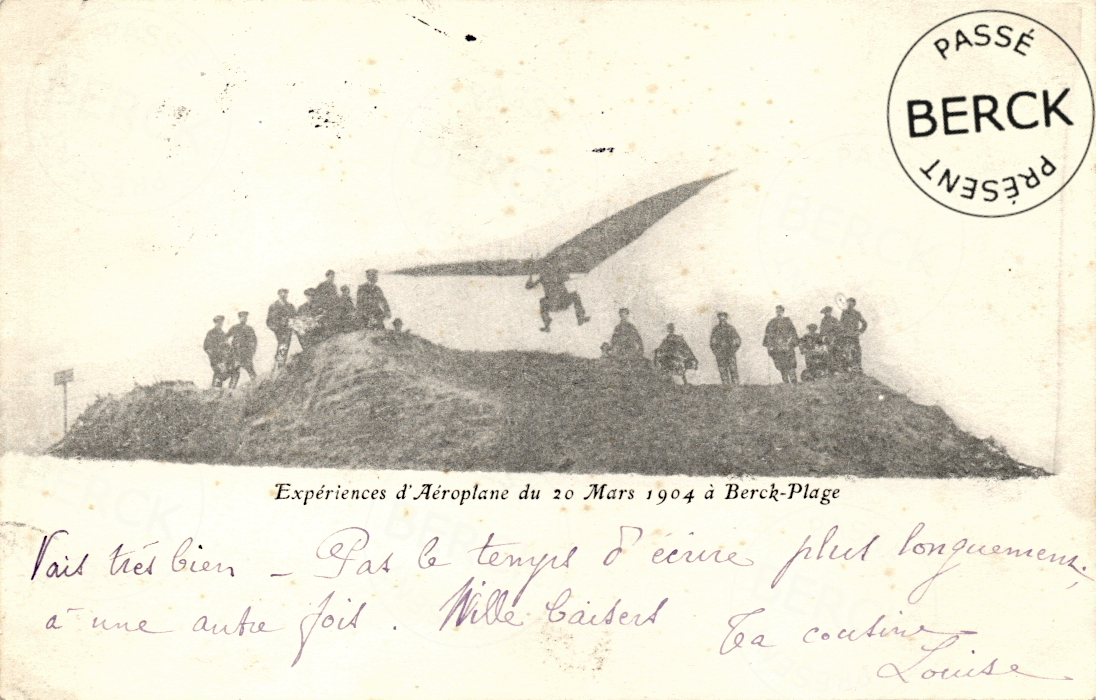 PASSÉ
BERCK
PRÉSENT
Expériences d'Aéroplane du 20 Mars 1904 à Berck-Plage
Vais très bien - Pas le temps d'écrire plus longuement,
à une autre fois. Mille baisers Ta cousine
Louise